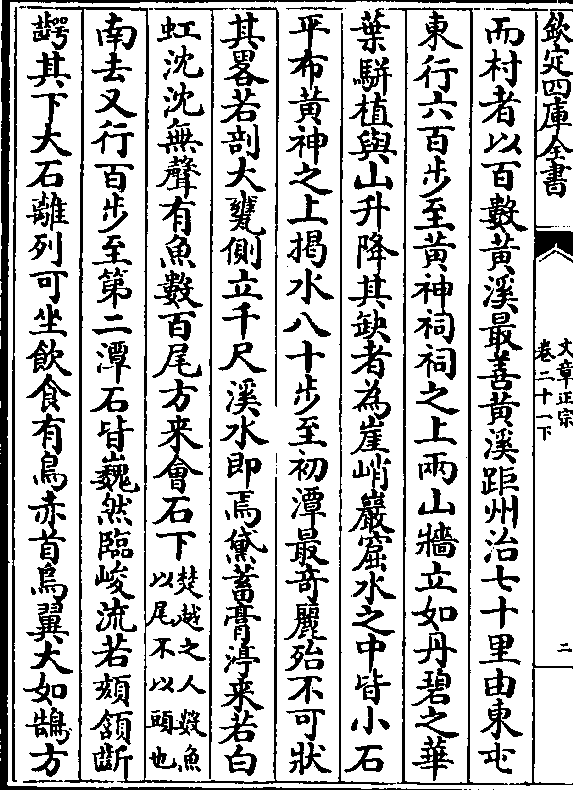 欽定四庫全書
文章正宗
卷二十一下
二
而村者以百數黃溪最善黃溪距州治七十里由東屯
東行六百步至黃神祠祠之上兩山牆立如丹碧之華
葉駢植與山升降其缺者為崖峭巖窟水之中皆小石
平布黃神之上揭水八十步至初潭最奇麗殆不可狀
其畧若剖大甕側立千尺溪水即焉黛蓄膏渟來若白
虹沈沈無聲有魚數百尾方來會石下楚越之人數魚以尾不以頭也
南去又行百步至第二潭石皆巍然臨峻流若頦頷斷
齶其下大石離列可坐飲食有鳥赤首烏翼大如鵠方